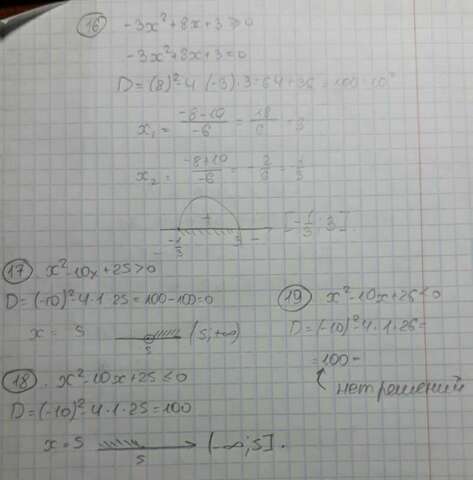 16 -3x²+8x+3≥0
-3x²+8x+3=0
D=(8)²-4·(-3)·3=64+36=100=10²
x₁= (-8-10)/-6 = 18/6 = 3
x₂= (-8+10)/-6 = -2/6 = -1/3
+
- -1/3 3 - [-1/3; 3]
17 x²-10x+25>0
D=(-10)²-4·1·25=100-100=0
x= 5 5 (5;+∞)
18 x²-10x+25≤0
D=(-10)²-4·1·25=100
x=5 5 (-∞;5].
19 x²-10x+25<0
D=(-10)²-4·1·25=
=100-
нет решений